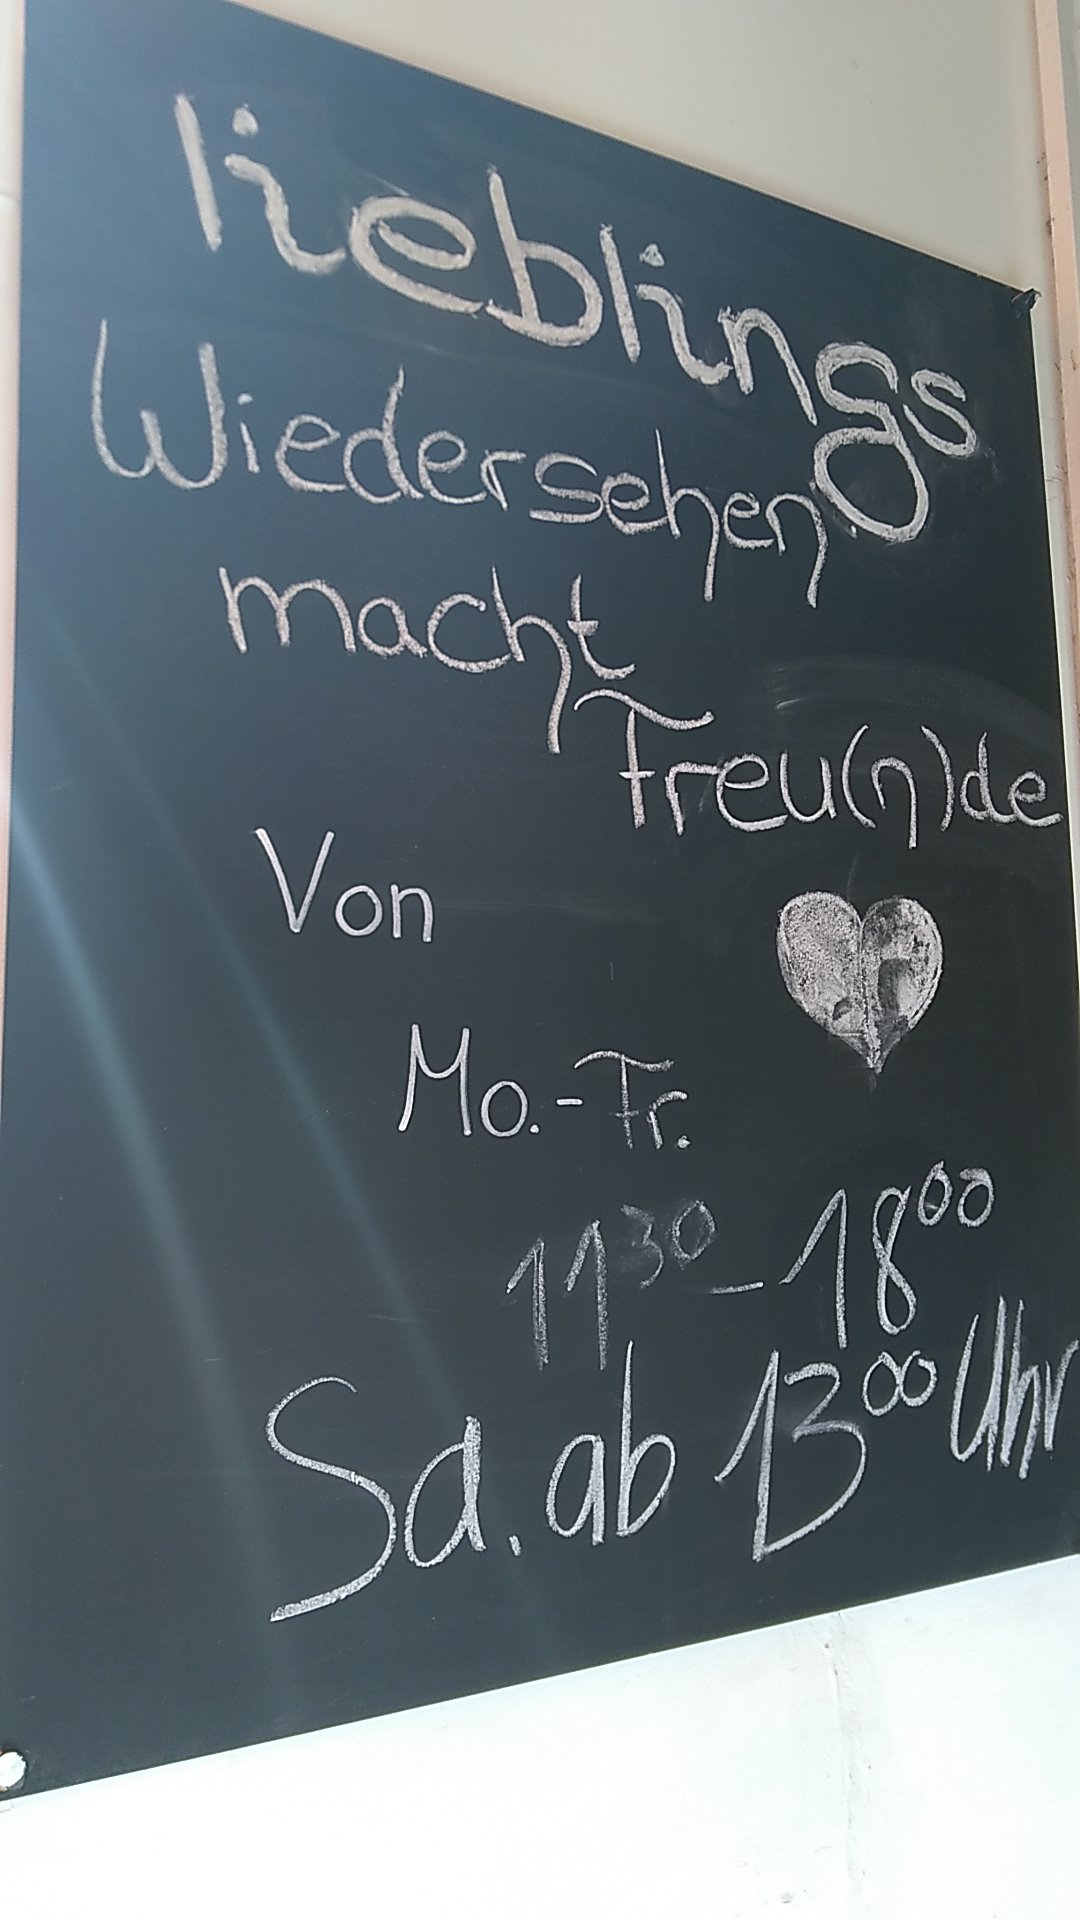 lieblings
Wiedersehen
macht
Freu(n)de
Von
Mo.-Fr.
11³⁰ – 18⁰⁰
Sa. ab 13⁰⁰ Uhr